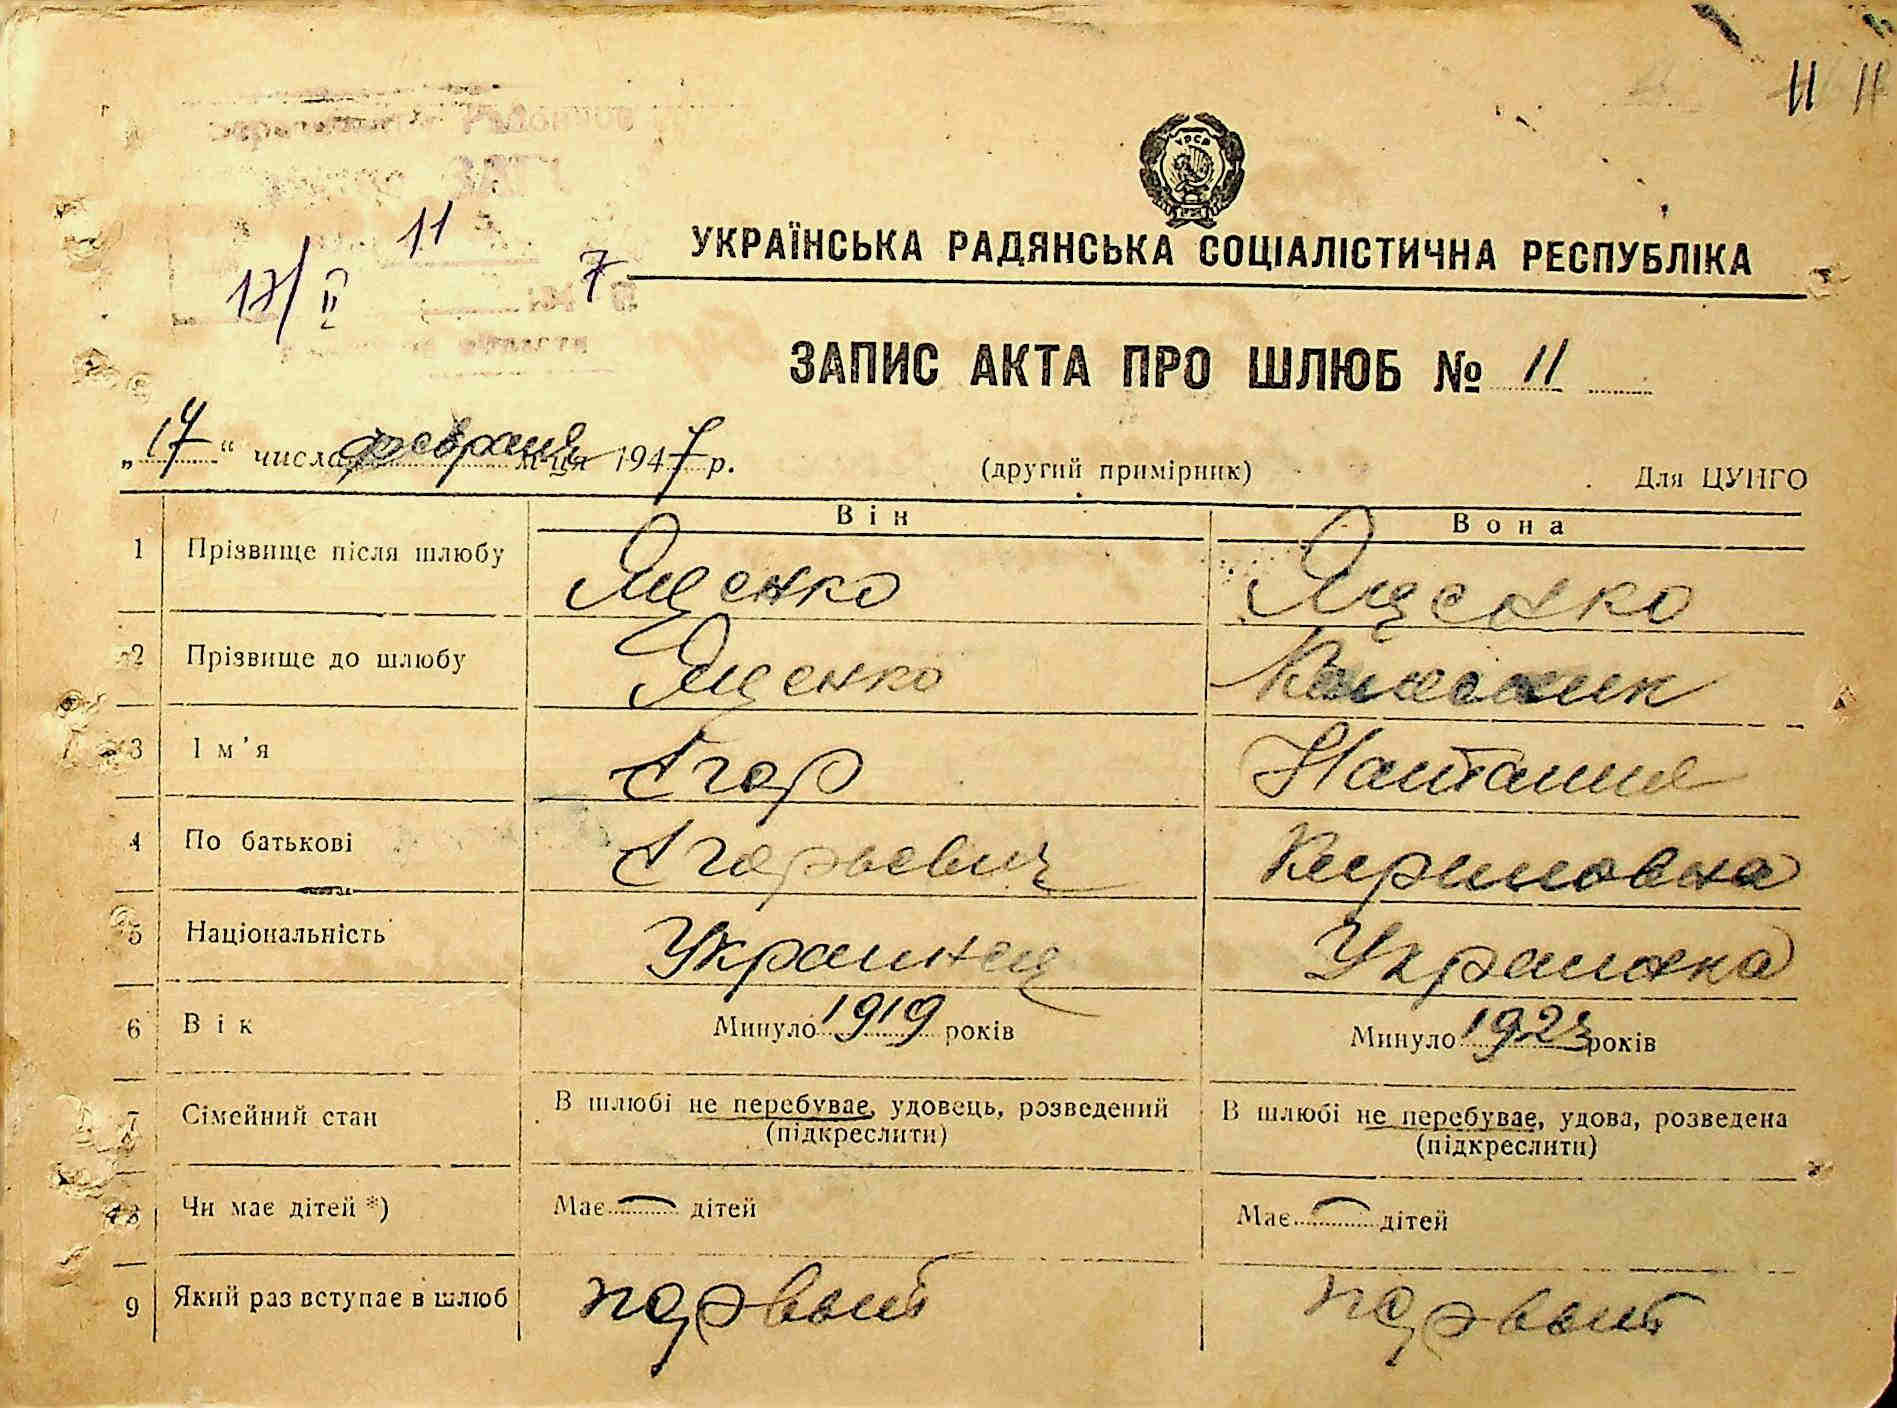 11 11
УРСР
УКРАЇНСЬКА РАДЯНСЬКА СОЦІАЛІСТИЧНА РЕСПУБЛІКА
11
17/II 7
ЗАПИС АКТА ПРО ШЛЮБ № 11
„17“ числа февраля м-ця 1947 р. (другий примірник) Для ЦУНГО
Він Вона
1 Прізвище після шлюбу Ященко Ященко
2 Прізвище до шлюбу Ященко
3 Ім'я Ігор Наталия
4 По батькові Ігорьевич Кириловна
5 Національність Украинец Украинка
6 Вік Минуло 1919 років Минуло 1923 років
7 Сімейний стан В шлюбі не перебуває, удовець, розведений В шлюбі не перебуває, удова, розведена
(підкреслити) (підкреслити)
8 Чи має дітей *) Має — дітей Має — дітей
9 Який раз вступає в шлюб первый первый